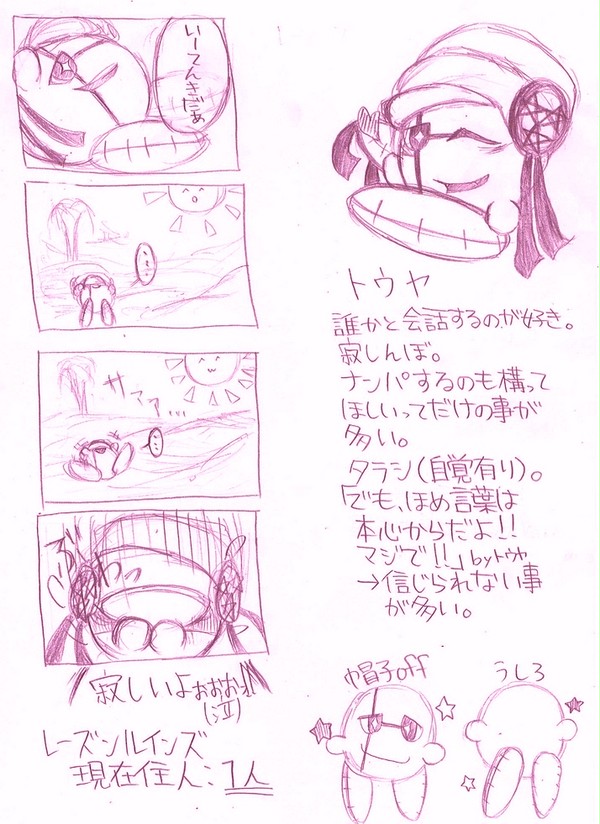 いーてんきだぁ
・・・
サァァァ…
・・・
ぶわっ
寂しいよぉぉぉぉ!!
(泣)
レーズンルインズ
現在住人:1人
トウヤ
誰かと会話するのが好き。
寂しんぼ。
ナンパするのも構って
ほしいってだけの事が
多い。
タラシ(自覚有り)。
「でも、ほめ言葉は
本心からだよ!!
マジで!!」byトウヤ
→信じられない事
が多い。
帽子off
うしろ